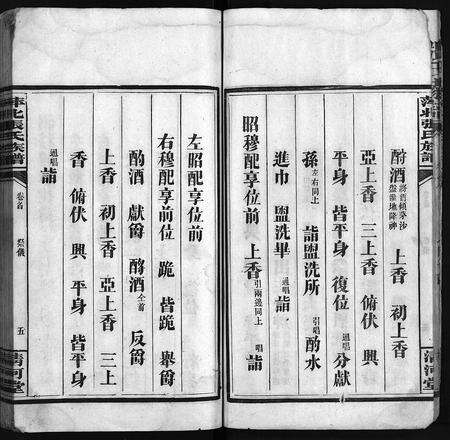 酹酒 將酒傾茅沙盤灌地降神 上香 初上香
亞上香 三上香 俯伏 興
平身 皆平身 復位 通唱 分獻
孫 左右同上 詣盥洗所 引唱 酌水
進巾 盥洗畢 通唱 詣
昭穆配享位前 上香 引兩邊同上 唱 詣
左昭配享位前
右穆配享前位 跪 皆跪 舉爵
酌酒 獻爵 酹酒 全前 反爵
上香 初上香 亞上香 三上
香 俯伏 興 平身 皆平身
通唱 詣
萍北張氏族譜 卷首 祭儀 五 清河堂